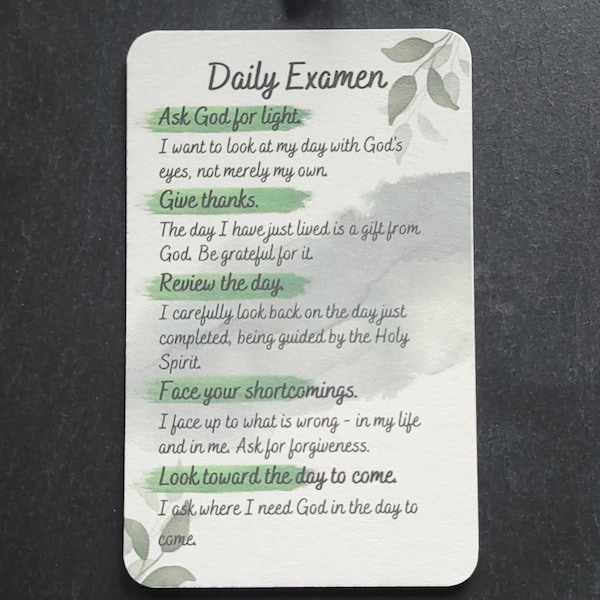 Daily Examen
Ask God for light.
I want to look at my day with God's
eyes, not merely my own.
Give thanks.
The day I have just lived is a gift from
God. Be grateful for it.
Review the day.
I carefully look back on the day just
completed, being guided by the Holy
Spirit.
Face your shortcomings.
I face up to what is wrong - in my life
and in me. Ask for forgiveness.
Look toward the day to come.
I ask where I need God in the day to
come.